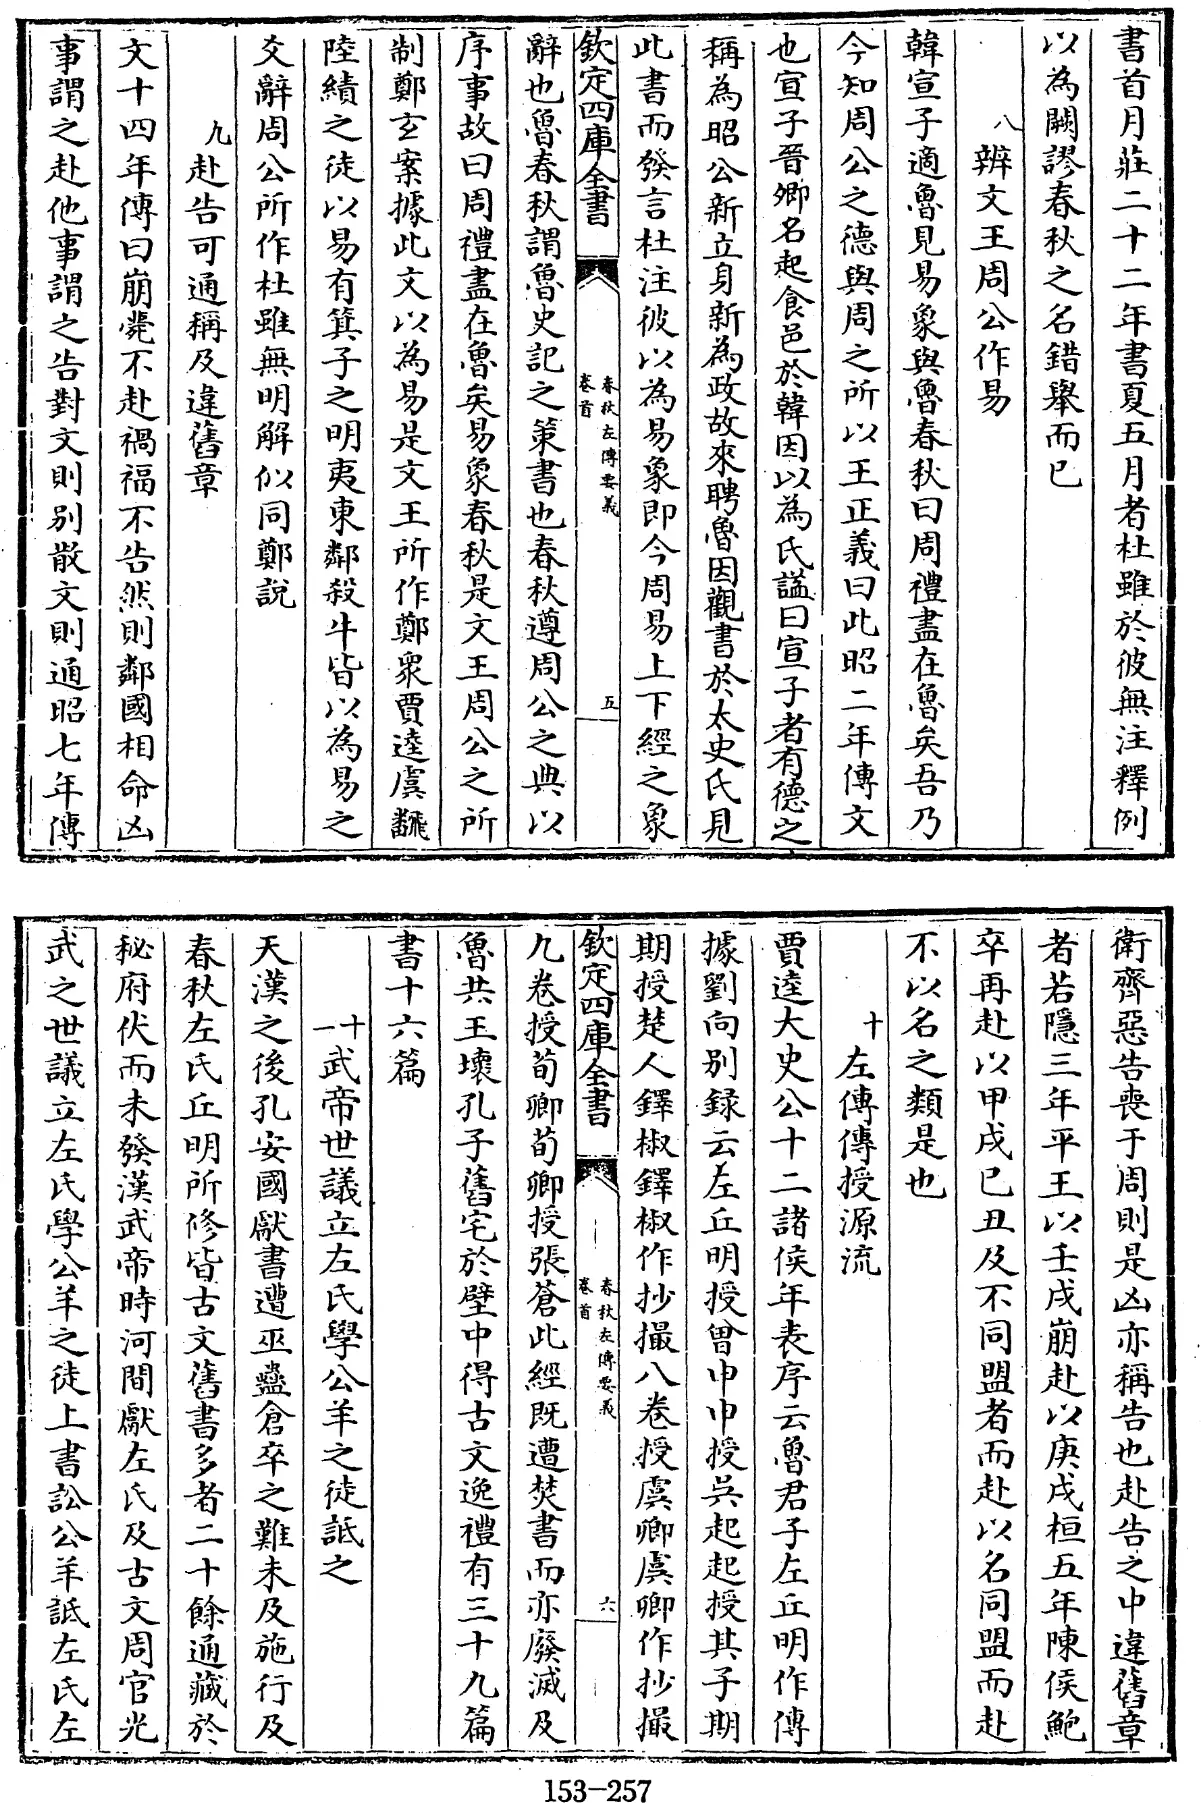 書首月莊二十二年書夏五月者杜雖於彼無注釋例
以為闕謬春秋之名錯舉而已
八辨文王周公作易
韓宣子適魯見易象與魯春秋曰周禮盡在魯矣吾乃
今知周公之德與周之所以王正義曰此昭二年傳文
也宣子晉卿名起食邑於韓因以為氏謚曰宣子者有德之
稱為昭公新立身新為政故來聘魯因觀書於太史氏見
此書而發言杜注彼以為易象即今周易上下經之象
欽定四庫全書
春秋左傳要義
卷首
五
辭也魯春秋謂魯史記之策書也春秋遵周公之典以
序事故曰周禮盡在魯矣易象春秋是文王周公之所
制鄭玄案據此文以為易是文王所作鄭眾賈逵虞翻
陸績之徒以易有箕子之明夷東鄰殺牛皆以為易之
爻辭周公所作杜雖無明解似同鄭說
九赴告可通稱及違舊章
文十四年傳曰崩薨不赴禍福不告然則鄰國相命凶
事謂之赴他事謂之告對文則別散文則通昭七年傳
衛齊惡告喪于周則是凶亦稱告也赴告之中違舊章
者若隱三年平王以壬戌崩赴以庚戌桓五年陳侯鮑
卒再赴以甲戌已丑及不同盟者而赴以名同盟而赴
不以名之類是也
十左傳傳授源流
賈逵大史公十二諸侯年表序云魯君子左丘明作傳
據劉向別録云左丘明授曾申申授吳起起授其子期
期授楚人鐸椒鐸椒作抄撮八卷授虞卿虞卿作抄撮
欽定四庫全書
春秋左傳要義
卷首
六
九卷授荀卿荀卿授張蒼此經既遭焚書而亦廢滅及
魯共王壞孔子舊宅於壁中得古文逸禮有三十九篇
書十六篇
十一武帝世議立左氏學公羊之徒詆之
天漢之後孔安國獻書遭巫蠱倉卒之難未及施行及
春秋左氏丘明所修皆古文舊書多者二十餘通藏於
秘府伏而未發漢武帝時河間獻左氏及古文周官光
武之世議立左氏學公羊之徒上書訟公羊詆左氏左
153-257